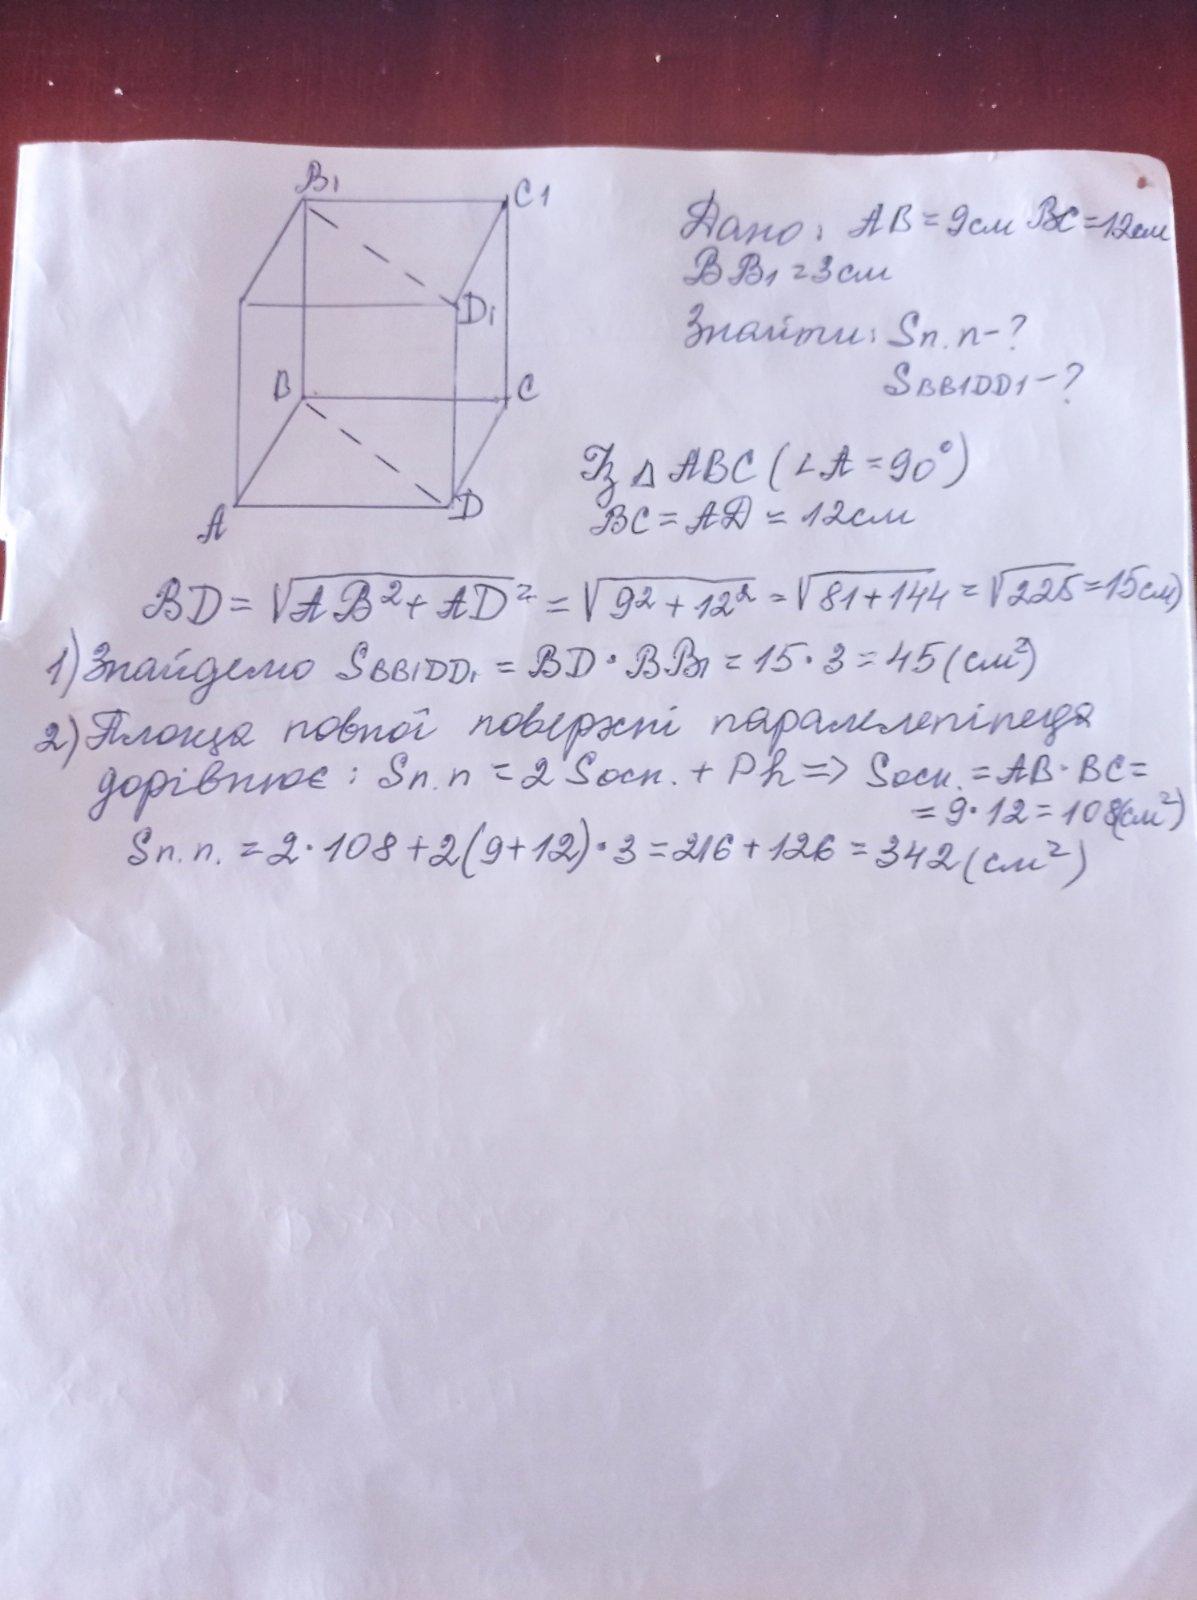 B1
C1
D1
B
C
A
D
Дано: AB = 9см BC = 12см
BB1 = 3см
Знайти: Sп.п - ?
SBB1DD1 - ?
Із Δ ABC (∠A = 90°)
BC = AD = 12см
BD = √AB² + AD² = √9² + 12² = √81 + 144 = √225 = 15см)
1) Знайдемо SBB1DD1 = BD · BB1 = 15 · 3 = 45 (см²)
2) Площа повної поверхні паралелепіпеда
дорівнює: Sп.п = 2 Sосн. + Ph => Sосн. = AB · BC =
= 9 · 12 = 108(см²)
Sп.п. = 2 · 108 + 2(9 + 12) · 3 = 216 + 126 = 342 (см²)